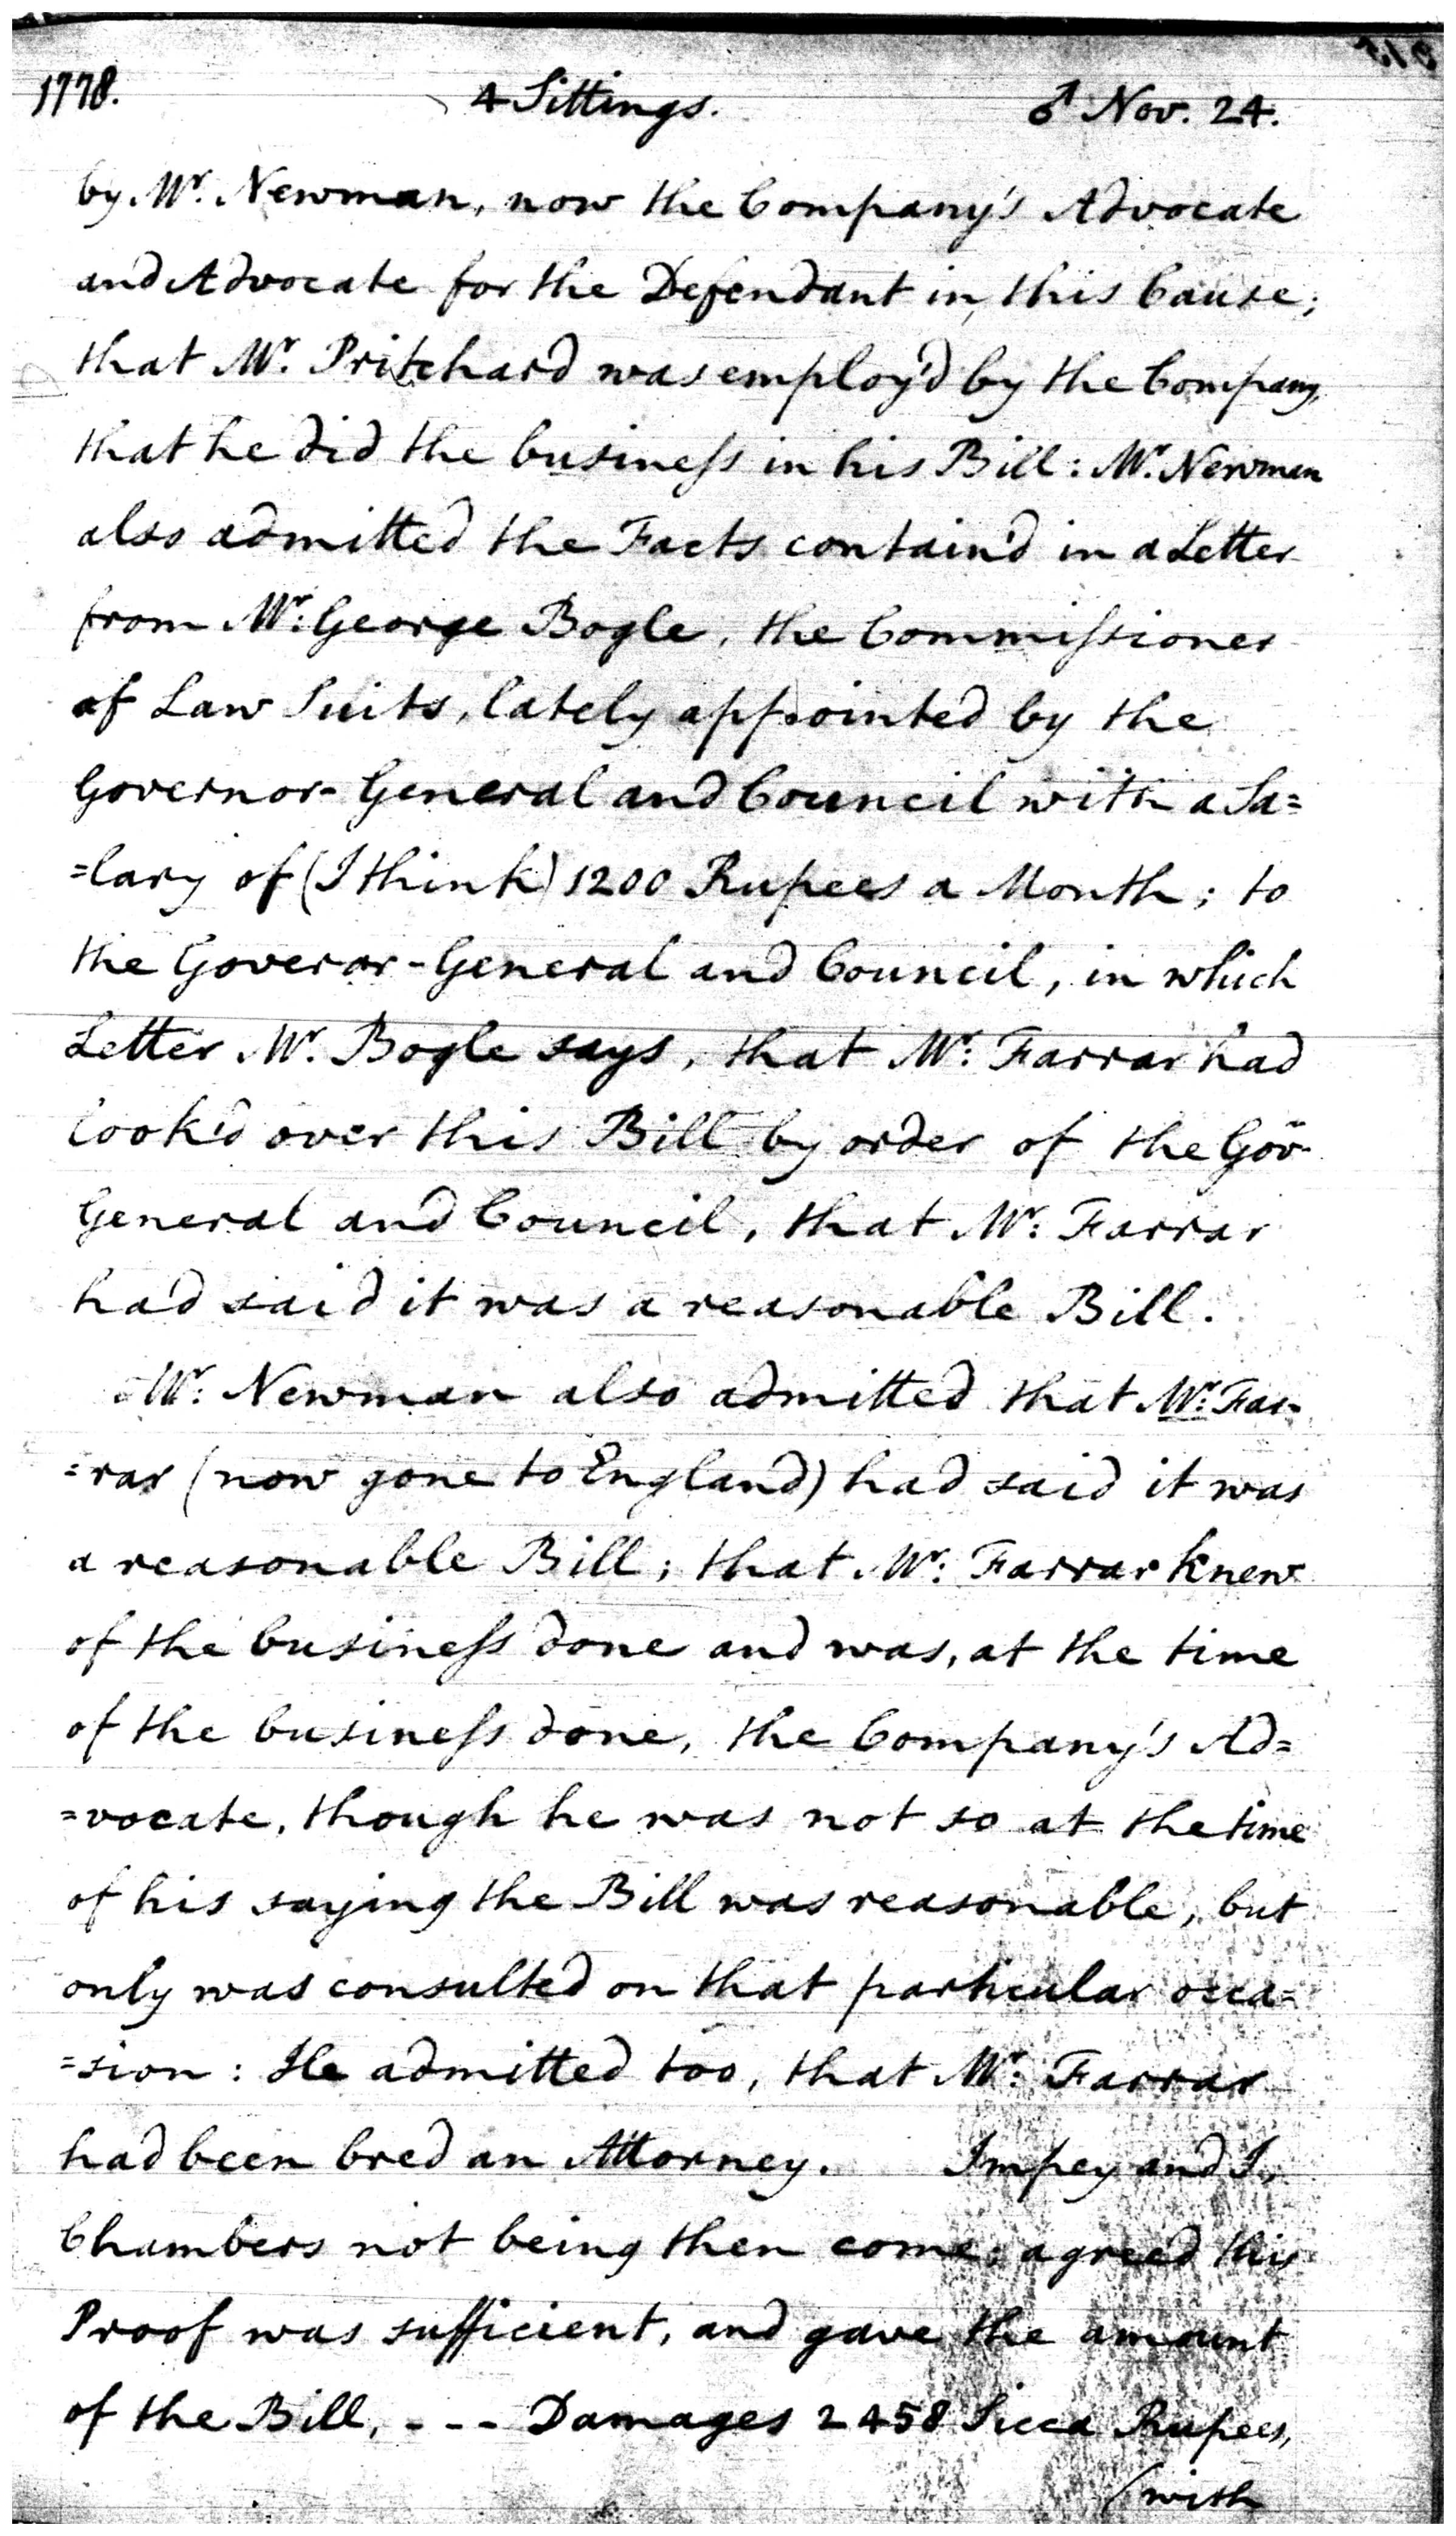 1778. 4 Sittings. ♂ Nov. 24.
by Mr. Newman, now the Company's Advocate
and Advocate for the Defendant in this Cause;
that Mr. Pritchard was employ'd by the Company,
that he did the busineſs in his Bill: Mr. Newman
also admitted the Facts contain'd in a Letter
from Mr: George Bogle, the Commiſsioner
of Law Suits, lately appointed by the
Governor-General and Council with a Sa=
=lary of (I think) 1200 Rupees a Month; to
the Goveror-General and Council, in which
Letter Mr. Bogle says, that Mr: Farrar had
look'd over this Bill by order of the Gov-
General and Council, that Mr: Farrar
had said it was a reasonable Bill.
Mr: Newman also admitted that Mr: Far=
=rar (now gone to England) had said it was
a reasonable Bill; that Mr: Farrar knew
of the busineſs done and was, at the time
of the busineſs done, the Company's Ad=
=vocate, though he was not so at the time
of his saying the Bill was reasonable, but
only was consulted on that particular occa=
=sion: He admitted too, that Mr: Farrar
had been bred an Attorney. Impey and I,
Chambers not being then come, agreed this
Proof was sufficient, and gave the amount
of the Bill, - - - Damages 2458 Sicca Rupees,
(with